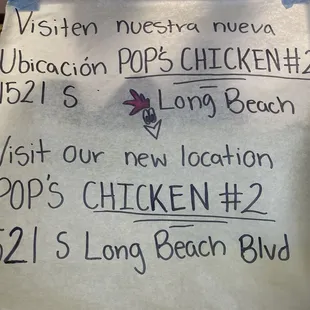 Visiten nuestra nueva
Ubicación POP'S CHICKEN #2
1521 S Long Beach
Visit our new location
POP'S CHICKEN #2
521 S Long Beach Blvd